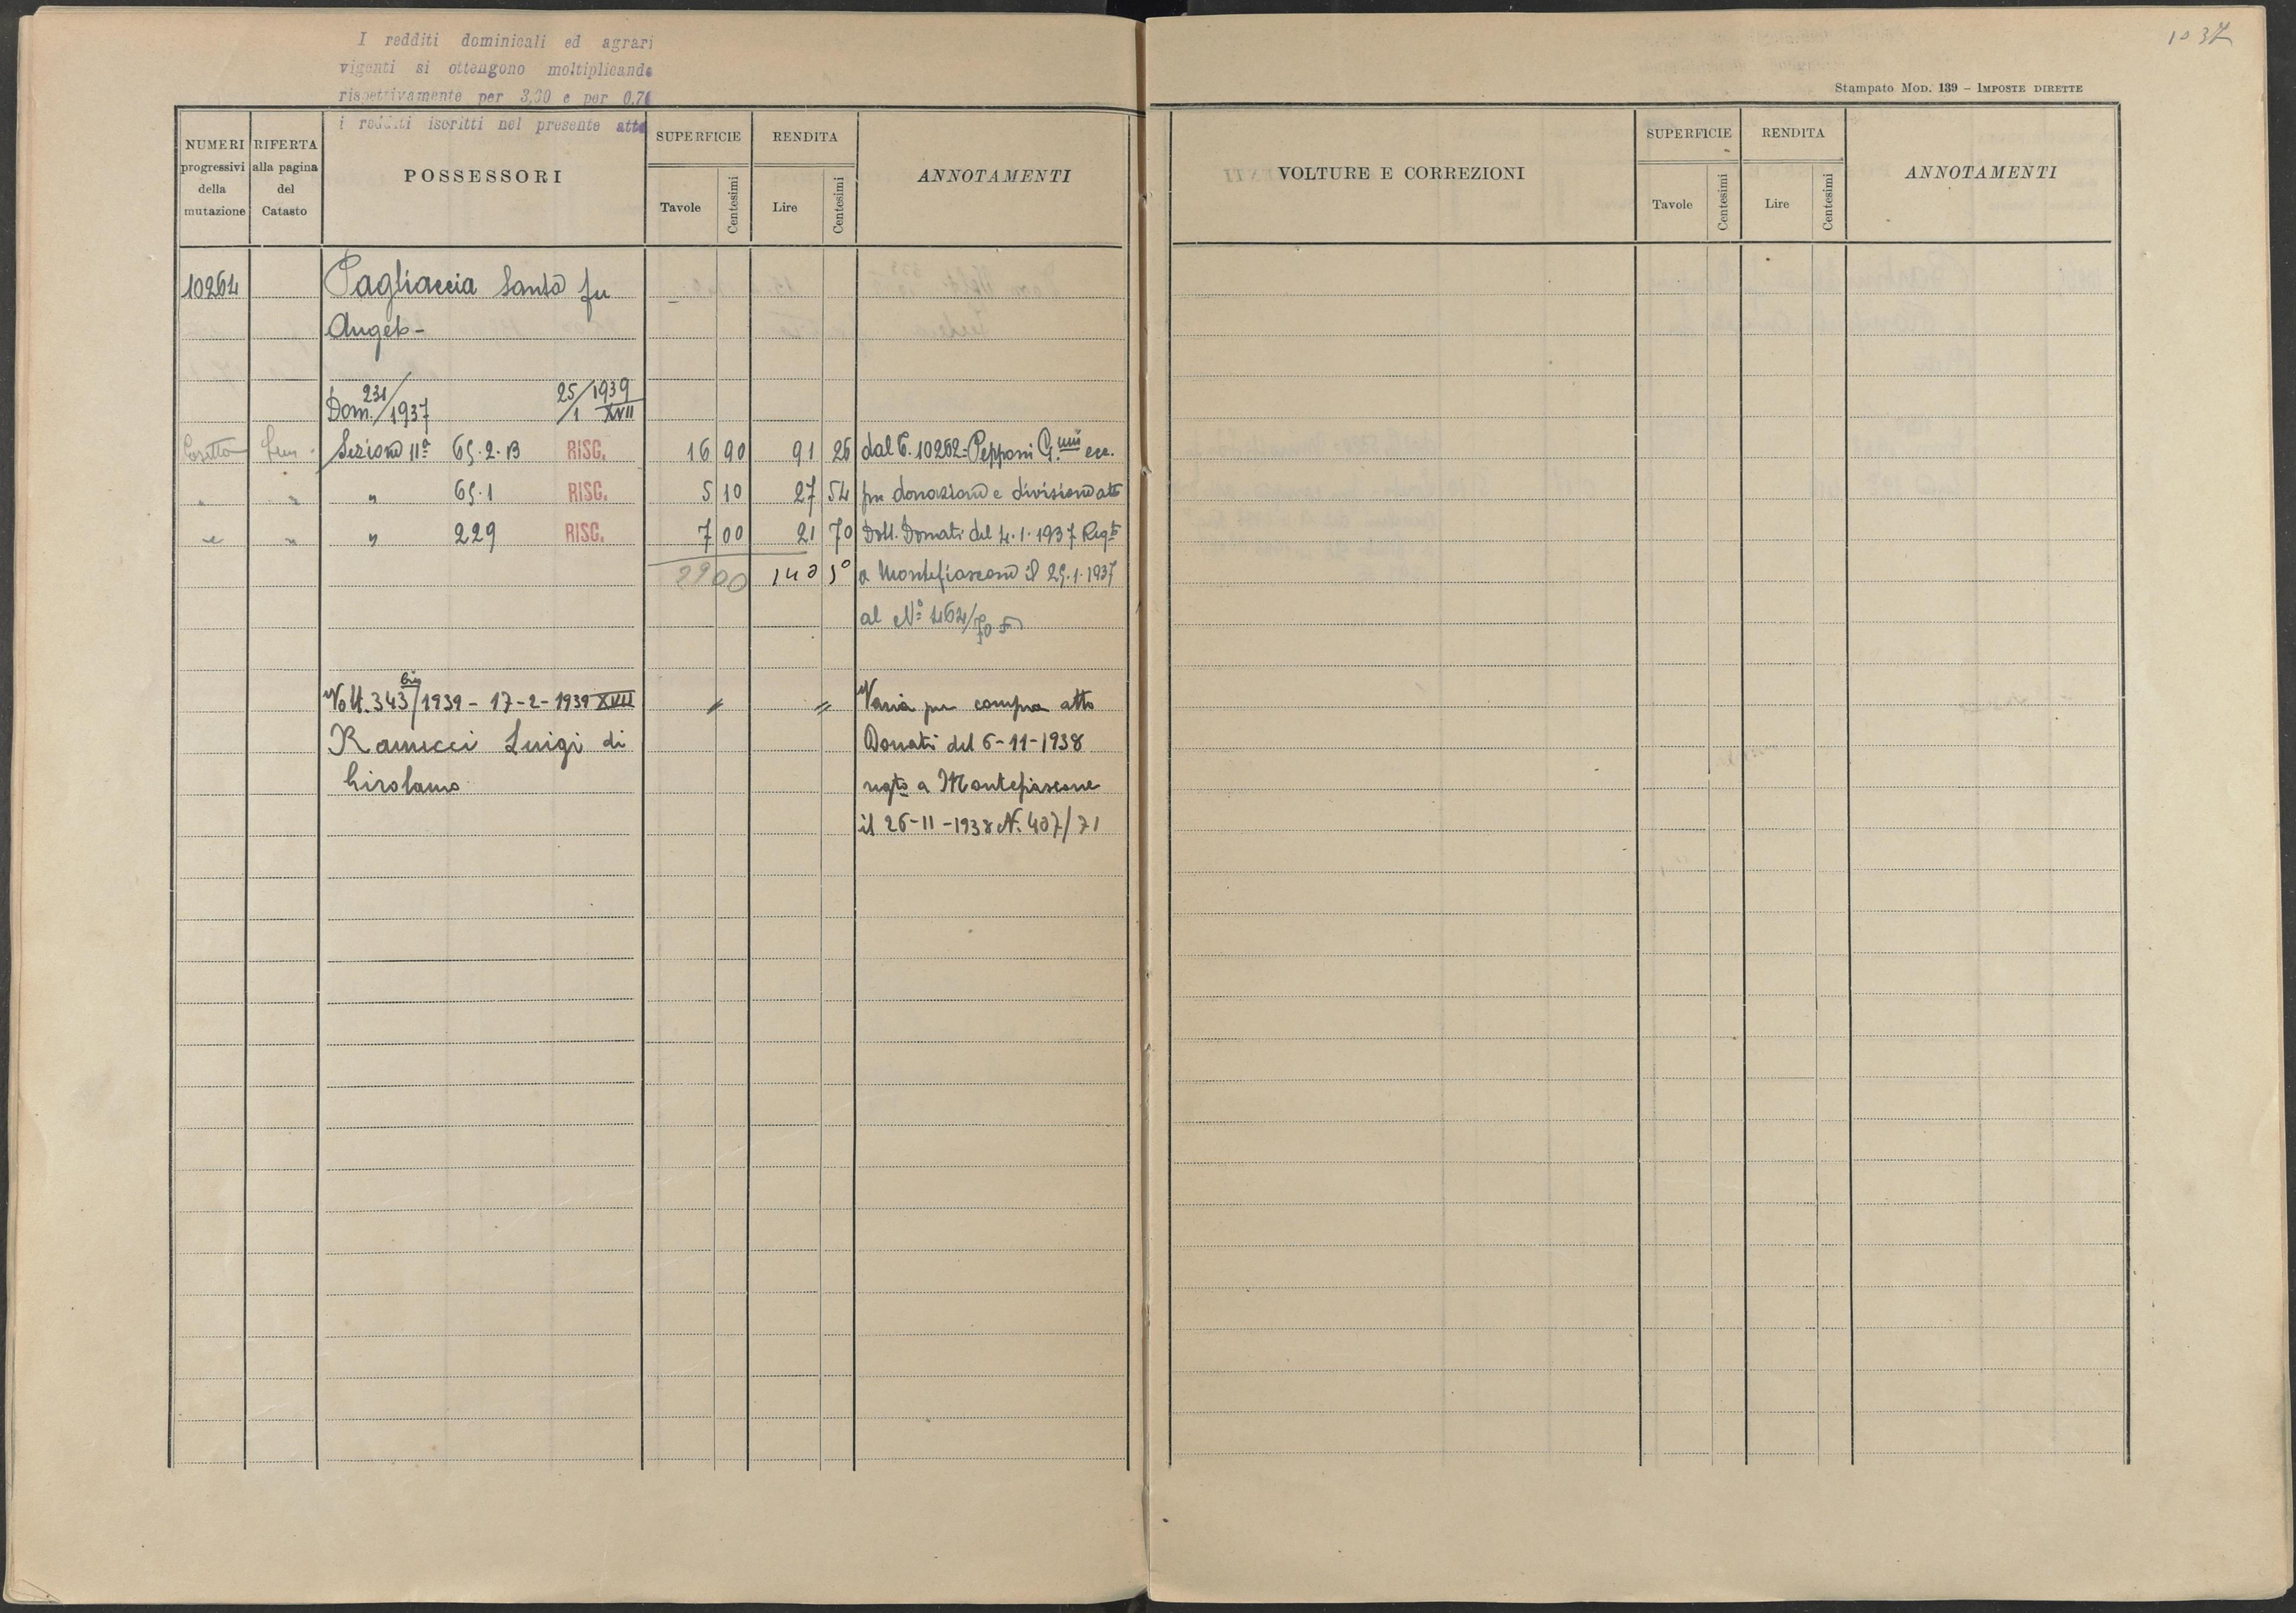 I redditi dominicali ed agrari
vigenti si ottengono moltiplicando
rispettivamente per 3,30 e per 0,7
i redditi iscritti nel presente atto
NUMERI progressivi della mutazione
RIFERTA alla pagina del Catasto
POSSESSORI
SUPERFICIE
Tavole
Centesimi
RENDITA
Lire
Centesimi
ANNOTAMENTI
10264 Pagliaccia Santa fu
Angelo -
Dom. 231/1937 25/1 1939 XVII
Sezione IIª 65.2.B RISC. 16 90 91 26 dal C. 10262 Pepponi G. ecc.
" " " 65.1 RISC. 5 10 27 54 per donazione e divisione atto
" " " 229 RISC. 7 00 21 70 Dott. Donati del 4.1.1937 Regto
29 00 140 50 a Montefiascone il 25.1.1937
al N° 464/70
Volt. 343 bis/1939 - 17-2-1939 XVII " " Varia per compra atto
Ranucci Luigi di Donati del 6-11-1938
Girolamo regto a Montefiascone
il 26-11-1938 N. 407/71
1037
Stampato Mod. 139 - Imposte dirette
VOLTURE E CORREZIONI
SUPERFICIE
Tavole
Centesimi
RENDITA
Lire
Centesimi
ANNOTAMENTI